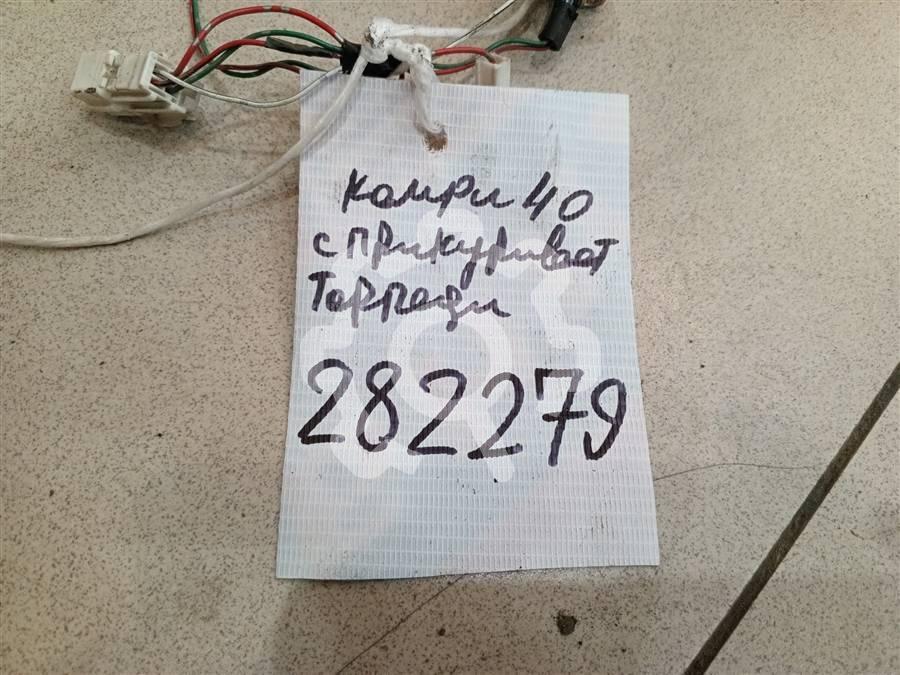 Камри 40
с прикуриват
Торпеди
282279